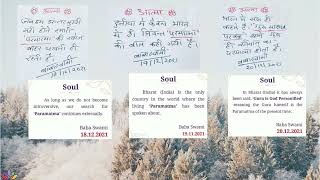 आत्मा
जब तक हम अंतर्मुखी
नहीं होते हमारी
परमात्मा की खोज
बाहर चलती ही
रहती है।
बाबा स्वामी
18/12/2021
आत्मा
दुनिया में केवल भारत
देश में ही जिवंत परमात्मा
की बात कही गयी है।
बाबा स्वामी
19/11/2021
आत्मा
बाबा स्वामी
20/12/2021
Soul
As long as we do not become
introversive, our search for
"Paramatma" continues externally.
Baba Swami
18.12.2021
Soul
Bharat (India) is the only
country in the world where the
living "Paramatma" has been
spoken about.
Baba Swami
19.11.2021
Soul
In Bharat (India) it has always
been said, "Guru is God Personified"
meaning the Guru himself is the
Paramatma of the present time.
Baba Swami
20.12.2021